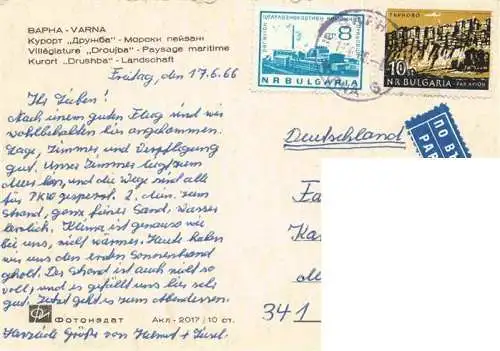 ВАРНА - VARNA
Курорт „Дружба“ - Морски пейзаж
Villégiature „Droujba“ - Paysage maritime
Kurort „Drushba“ - Landschaft
Freitag, den 17.6.66
Ihr Lieben!
Nach einem guten Flug sind wir
wohlbehalten hier angekommen.
Lage, Zimmer und Verpflegung
gut. Unser Zimmer liegt zum
Meer hin, und die Wege sind alle
für PKW gesperrt. 2 Min. zum
Strand, ganz feiner Sand, Wasser
herrlich. Klima ist genauso wie
bei uns, nicht wärmer. Heute haben
wir uns den ersten Sonnenbrand
geholt. Der Strand ist auch nicht so
voll, und es gefällt uns hier sehr
gut. Jetzt geht es zum Abendessen.
Herzliche Grüße von Helmut +
Фотоиздат
Акл - 2017 / 10 ст.
8
NR BULGARIA
ТЪРНОВО
10
N.R. BULGARIA
PAR AVION
Deutschland
ПО ВЪ
PAR
Fa
Ka
341